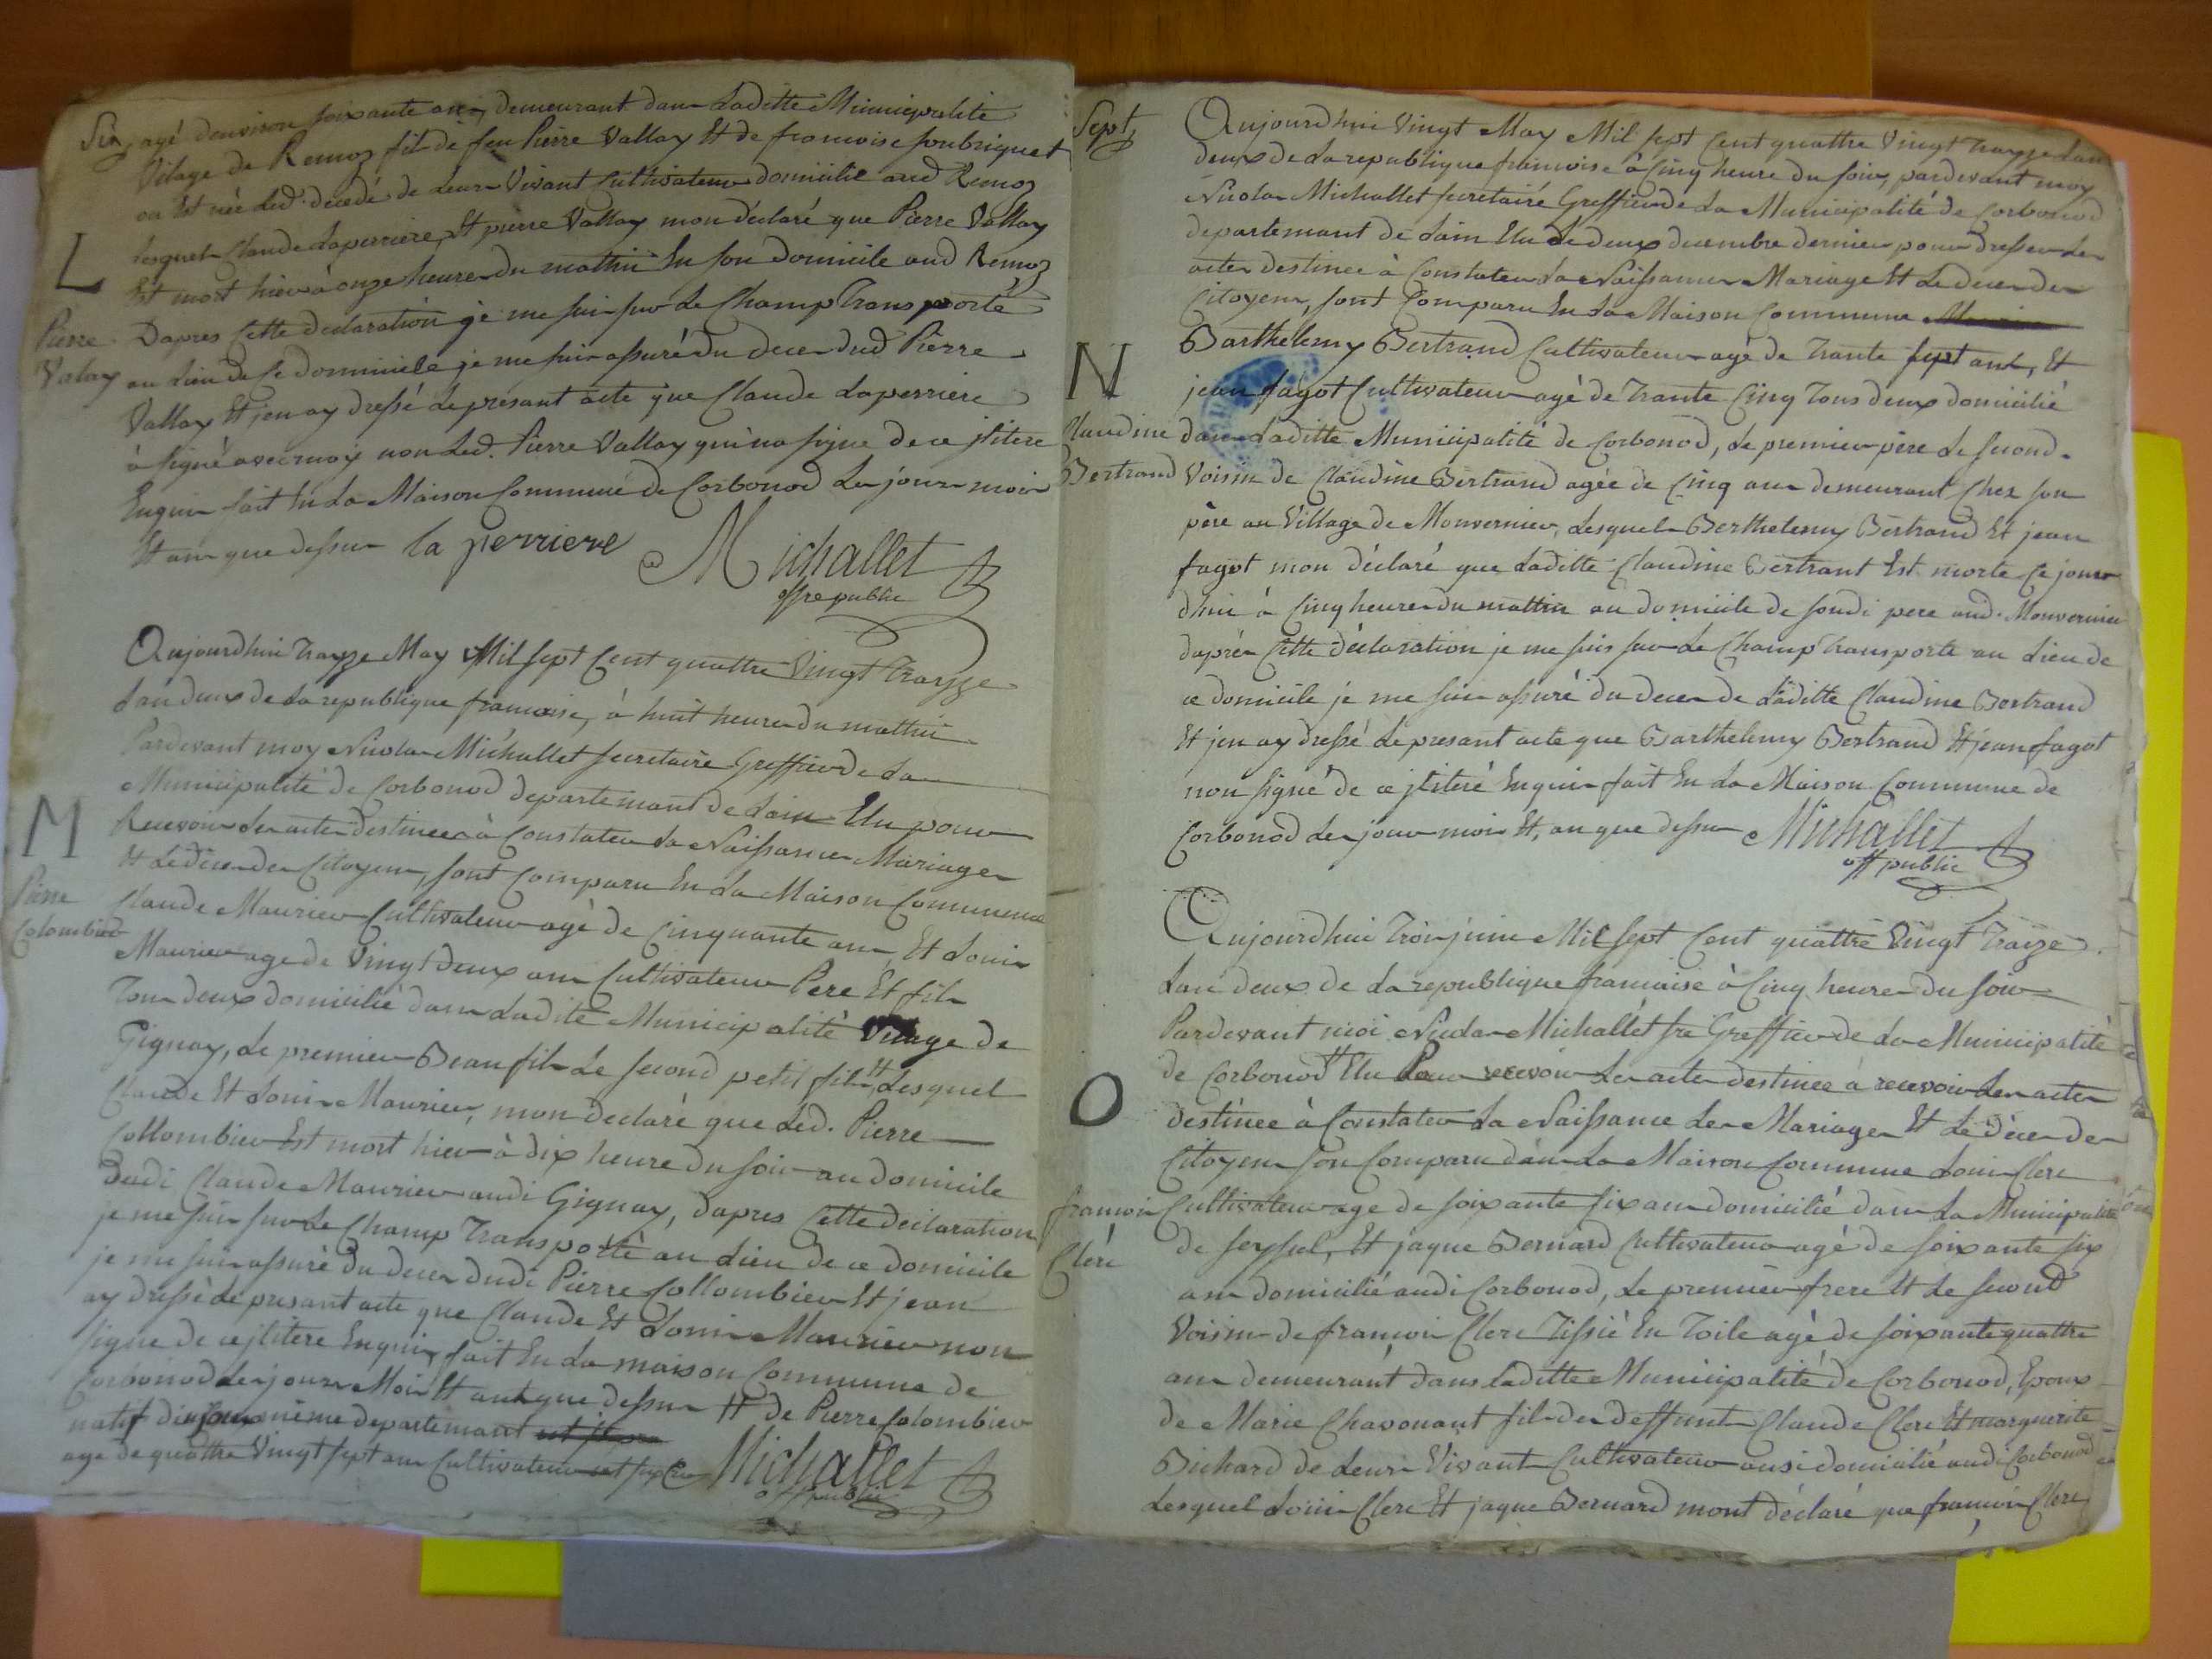 Six, agé denviron soixante ans, demeurant dans Laditte Municipalité
Vilage de Remoz fils de feu Pierre Vallay Et de francoise soubriquet
ou Est née Led. décedé de Leurs Vivant Cultivateur domicilié aud Remoz
lesquels Claude Laperriere, Et pierre Vallay mon déclaré que Pierre Vallay
L
Est mort hier à onze heures du mattin En son Domicile aud Remoz
Pierre
Valay
Dapres Cette declaration je me suis sur Le Champ Transporté
au Lieu de Ce dommicile je me suis assuré du deces dud Pierre
Vallay Et jen ay dressé Le présant acte que Claude Laperriere
à signé avec moy non Led. Pierre Vallay qui na signe de ce jlitere
Enquis fait En La Maison Commune de Corbonod Les jours mois
Et ans que dessus la perriere Michallet
offre public
Aujourdhui Trayze May Mil sept Cent quattre Vingt Trayze
Lan deux de La republique francoise, à huit heures du mattin
Pardevant moy Nicolas Michallet secretaire Greffier de La
Municipalité de Corbonod departemant de Lain Elu pour
M
Recevoir Les actes destinees à Constater La Naissances Mariages
Et Le déces des Citoyens, sont Comparu En La Maison Commune
Pierre
Colombier
Claude Maurier Cultivateur agé de Cinquante ans, Et Louis
Maurier age de Vingt deux ans Cultivateur Pere Et fils
Tous deux domicilié dans Ladite Municipalité Vilage de
Gignay, Le premier Beau fils Le second petit fils, H Lesquel
Claude Et Louis Maurier, mon declaré que Led. Pierre
Collombier Est mort hier à dix heure du soir au domicile
Dudi Claude Maurier audi Gignay, dapres Cette declaration
je me suis sur Le Champ Transporté au Lieu de ce domicile
je me suis assuré du deces dudi Pierre Collombier Et jean
ay dressé Le presant acte que Claude Et Louis Maurier non
signe de ce jlitere Enquis, fait En La maison Commune de
Corbonod Les jours Mois Et ans que dessus H de Pierre Colombier
natif même departemant
age de quattre Vingt sept ans Cultivateur Michallet
off public
Sept
Aujourdhui Vingt May Mil sept Cent quattre Vingt Trayze Lan
deux de La republique francoise à Cinq heure du soir, pardevant moy
Nicolas Michallet secretaire Greffier de La Municipalité de Corbonod
departemant de Lain Elu Le deux decembre dernier pour dresser Les
actes destinee à Constater La Naissances Mariage Et Le deces des
Citoyens, sont Comparu En La Maison Commune
N
Barthelemy Bertrand Cultivateur agé de Trante sept ans, Et
jean fagot Cultivateur agé de Trante Cinq Tous deux domicilié
Claudine
Bertrand
dans Laditte Municipalité de Corbonod, Le premier père Le second
Voisin de Claudine Bertrand agée de Cinq ans demeurant Chez son
père au Village de Mouvernier, Lesquels Berthelemy Bertrand Et jean
fagot mon déclaré que Laditte Claudine Bertrant Est morte Ce jour
dhui à Cinq heures du mattin au domicile de soudi pere aud. Mouvernier
daprés Cette déclaration je me suis sur Le Champ Transporte au Lieu de
ce domicile je me suis assuré du deces de Laditte Claudine Bertrand
Et jen ay dressé Le presant acte que Barthelemy Bertrand Et jean fagot
non signé de ce jliteré Enquis fait En La Maison Commune de
Corbonod Les jour mois Et, an que dessus Michallet
off public
Aujourdhui Trois juin Mil sept Cent quattre Vingt Trayze
Lan deux de La republique francaise à Cinq heures du soir
Pardevant moi Nicolas Michallet sre Greffier de La Municipalité
de Corbonod H Elu Pour recevoir Les actes destinee à recevoir Les actes
O
destinee à Constater La Naissance Les Mariages Et Le déces des
Citoyens son Comparu dans La Maison Commune Louis Clerc
francois
Clerc
Cultivateur age de soixante six ans domicilié dans La Municipalité
de seyssel, Et jaque Bernard Cultivateur agé de soixante six
ans domicilié audi Corbonod, Le premier frere Et Le second
Voisin de francois Clerc Tissié En Toile agé de soixante quattre
ans demeurant dans Laditte Municipalité de Corbonod, Epoux
de Marie Chavouant fils des deffunts Claude Clerc Et marguerite
Bichard de Leurs Vivant Cultivateur ausi domicilié audi Corbonod
Lesquel Louis Clerc Et jaque Bernard mont déclaré que francois Clerc